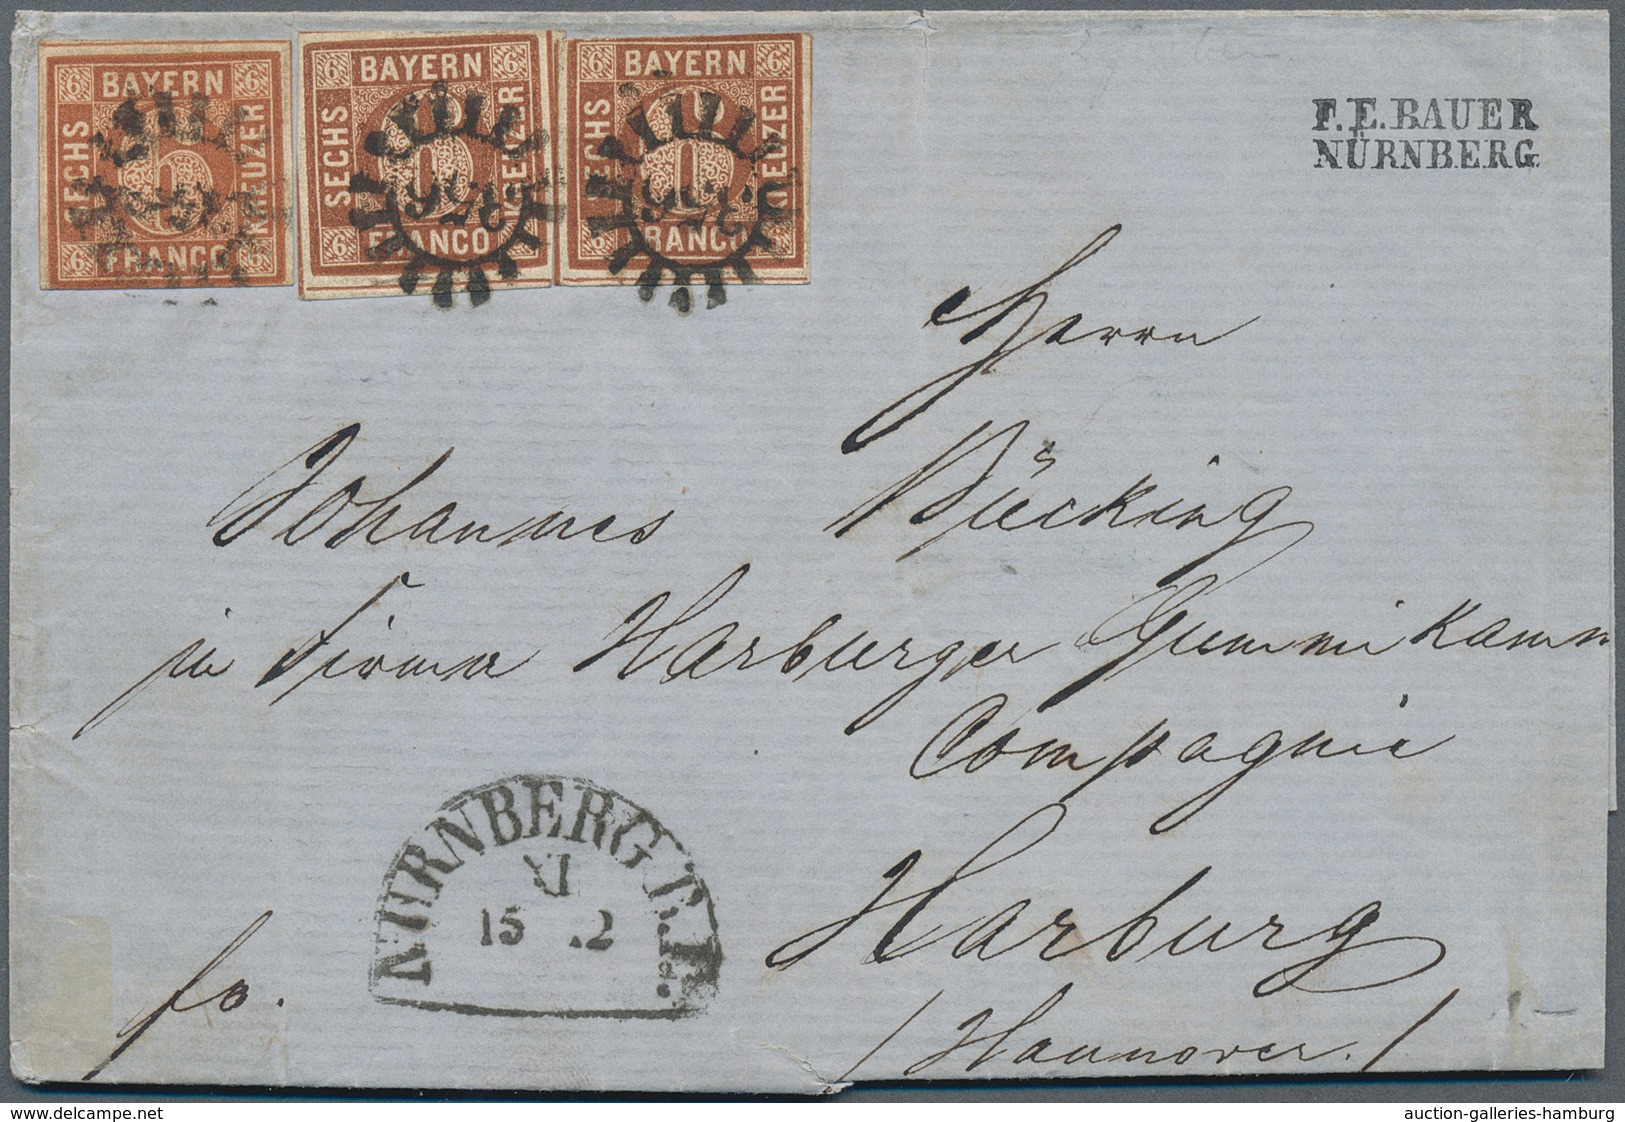 6 BAYERN 6
SECHS
KREUZER
6 FRANCO 6
6 BAYERN 6
SECHS
KREUZER
6 FRANCO
6 BAYERN 6
SECHS
KREUZER
6 FRANCO
356
356
F. E. BAUER
NÜRNBERG.
Herrn
Johannes Bücking
in Firma Harburger Gummi Kamm
Compagnie
Harburg
/Hannover./
fo.
NÜRNBERG
15 .2
auction-galleries-hamburg